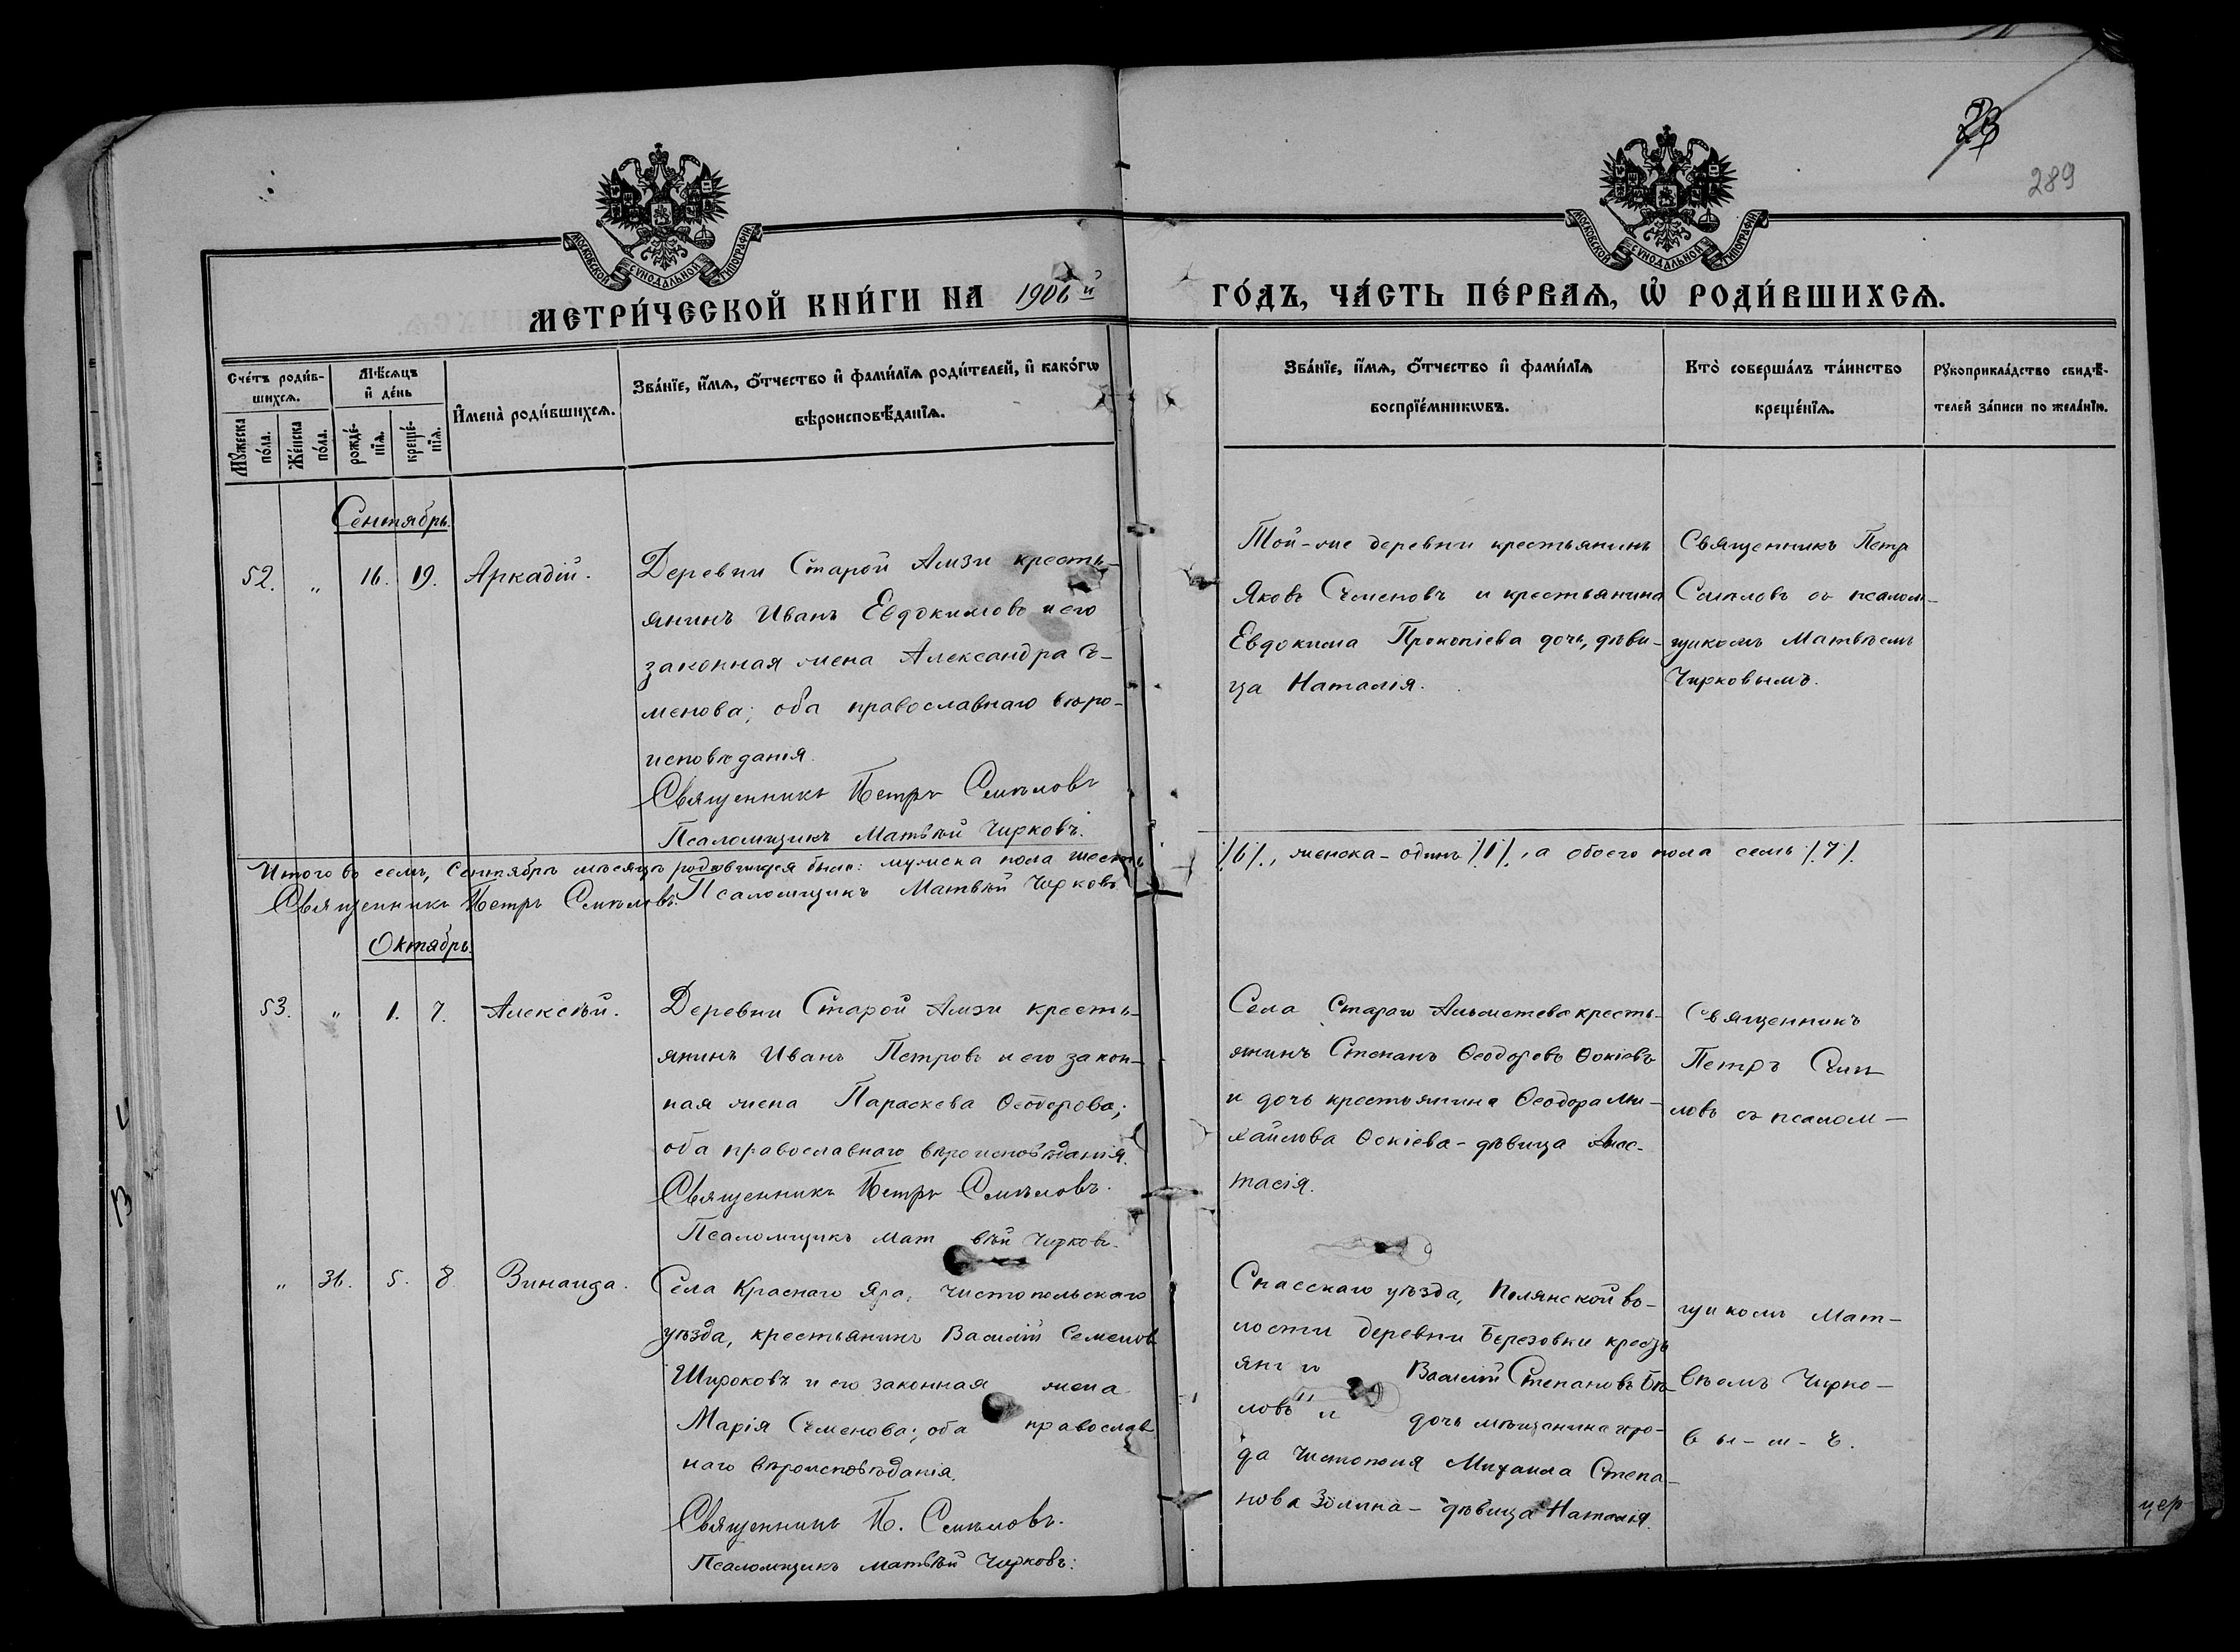 289
МОСКОВСКОЙ СѴНОДАЛЬНОЙ ТИПОГРАФІИ
МОСКОВСКОЙ СѴНОДАЛЬНОЙ ТИПОГРАФІИ
МЕТРИ́ЧЕСКОЙ КНИ́ГИ НА 1906й
ГО́ДЪ, ЧА́СТЬ ПЕ́РВАѦ, Ѡ҆ РОДИ́ВШИХСѦ.
Сче́тъ роди́в-
шихсѧ.
Мꙋ́жеска
по́ла.
Же́нска
по́ла.
Мѣ́сѧцъ
и҆ де́нь
рожде́-
нїѧ.
креще́-
нїѧ.
И҆мена̀ роди́вшихсѧ.
Зва́нїе, и҆́мѧ, ѻ҆́тчество и҆ фами́лїѧ роди́телей, и҆ како́гѡ
вѣроисповѣ́данїѧ.
Зва́нїе, и҆́мѧ, ѻ҆́тчество и҆ фами́лїѧ
воспрїе́мникѡвъ.
Кто̀ соверша́лъ та́инство
креще́нїѧ.
Рꙋкоприкла́дство свидѣ́-
телей за́писи по жела́нїю.
Сентябрь.
52. „ 16. 19. Аркадій.
Деревни Старой Амзи кресть-
янинъ Иванъ Евдокимовъ и его
законная жена Александра Се-
менова; оба православнаго вѣро-
исповѣданія.
Священникъ Петръ Смѣловъ
Псаломщикъ Матвѣй Чирковъ.
Той-же деревни крестьянинъ
Яковъ Семеновъ и крестьянина
Евдокима Прокопіева дочь, дѣви-
ца Наталія.
Священникъ Петръ
Смѣловъ съ псалом-
щикомъ Матвѣемъ
Чирковымъ.
Итого въ семъ, Сентябрѣ мѣсяцѣ родившихся было: мужска пола шесть
/6/., женска - одинъ /1/, а обоего пола семь /7/.
Священникъ Петръ Смѣловъ. Псаломщикъ Матвѣй Чирковъ
Октябрь.
53. „ 1. 7. Алексѣй.
Деревни Старой Амзи кресть-
янинъ Иванъ Петровъ и его закон-
ная жена Параскева Ѳеодорова;
оба православнаго вѣроисповѣданія.
Священникъ Петръ Смѣловъ.
Псаломщикъ Мат вѣй Чирковъ.
Села Стараго Альметева кресть-
янинъ Степанъ Ѳеодоровъ Ѳокіевъ
и дочь крестьянина Ѳеодора Ми-
хайлова Ѳокіева - дѣвица Анас-
тасія.
Священникъ
Петръ Смѣ
ловъ съ псалом-
„ 31. 5. 8. Зинаида.
Села Краснаго Яра, Чистопольскаго
уѣзда, крестьянинъ Василій Семенов
Широковъ и его законная жена
Марія Семенова; оба православ
наго вѣроисповѣданія.
Священникъ П. Смѣловъ.
Псаломщикъ Матвѣй Чирковъ.
Спасскаго уѣзда, Полянской во-
лости деревни Березовки кресть
янинъ Василій Степановъ Бѣ-
ловъ и дочь мѣщанина горо-
да Чистополя Михаила Степа-
нова Золина - дѣвица Наталія.
щикомъ Мат-
вѣемъ Чирко-
вы-м-ъ.
цер